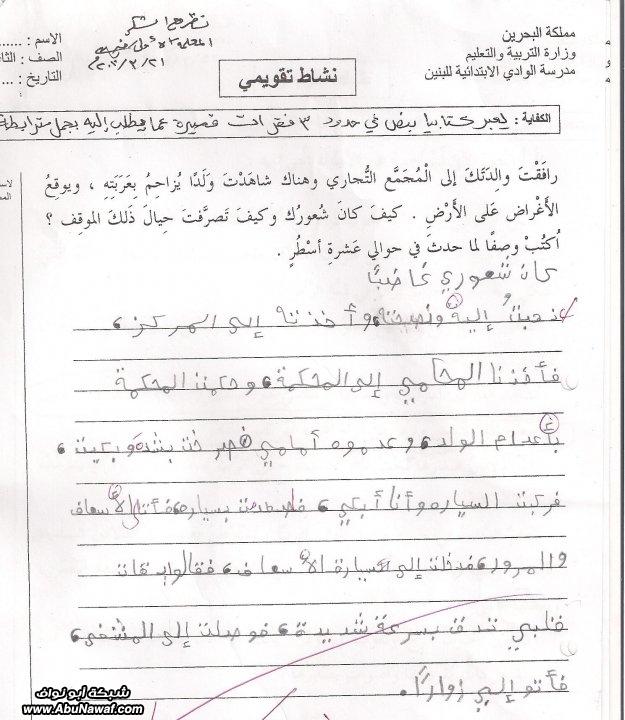 مملكة البحرين
وزارة التربية والتعليم
مدرسة الوادي الابتدائية للبنين
نشاط تقويمي
الاسم : ......
الصف : الثا
التاريخ : ....
الكفاية : يعبر كتابيا بنص في حدود ٣ فقرات قصيرة عما يطلب إليه بجمل مترابطة
رافَقْتَ والِدَتَكَ إلى الْمُجَمَّعِ التُّجاري وهناك شاهَدْتَ وَلَدًا يُزاحِمُ بِعَرَبَتِهِ ، ويوقِعُ
الأَغْراضَ عَلى الأَرْضِ . كيفَ كانَ شعورُك وكيفَ تَصرَّفتَ حِيالَ ذَلكَ الموقِف ؟
اُكتُبْ وصِفًا لما حدثَ في حوالي عَشرةِ أسْطُرٍ .
كان شعوري غاضبًا
ذهبتُ إلية ونصحته وأخذته إلى المركز،
فأخذنا المحامي إلى المحكمة، وحكمت المحكمة
بأعدام الولد، وعدموه أمامي فصرخت بشده وبكيت،
فركبت السياره وأنا أبكي، فاصطدمت بسياره، فأتى الأسعاف
والمرور، فدخلت إلى السيارة الأسعاف، فقالوا
قلبي تدق بسرعة شديدة، فوصلت إلى المشفى،
فأتو إلي زوارًا.
شبكة أبو نواف
www.AbuNawaf.com